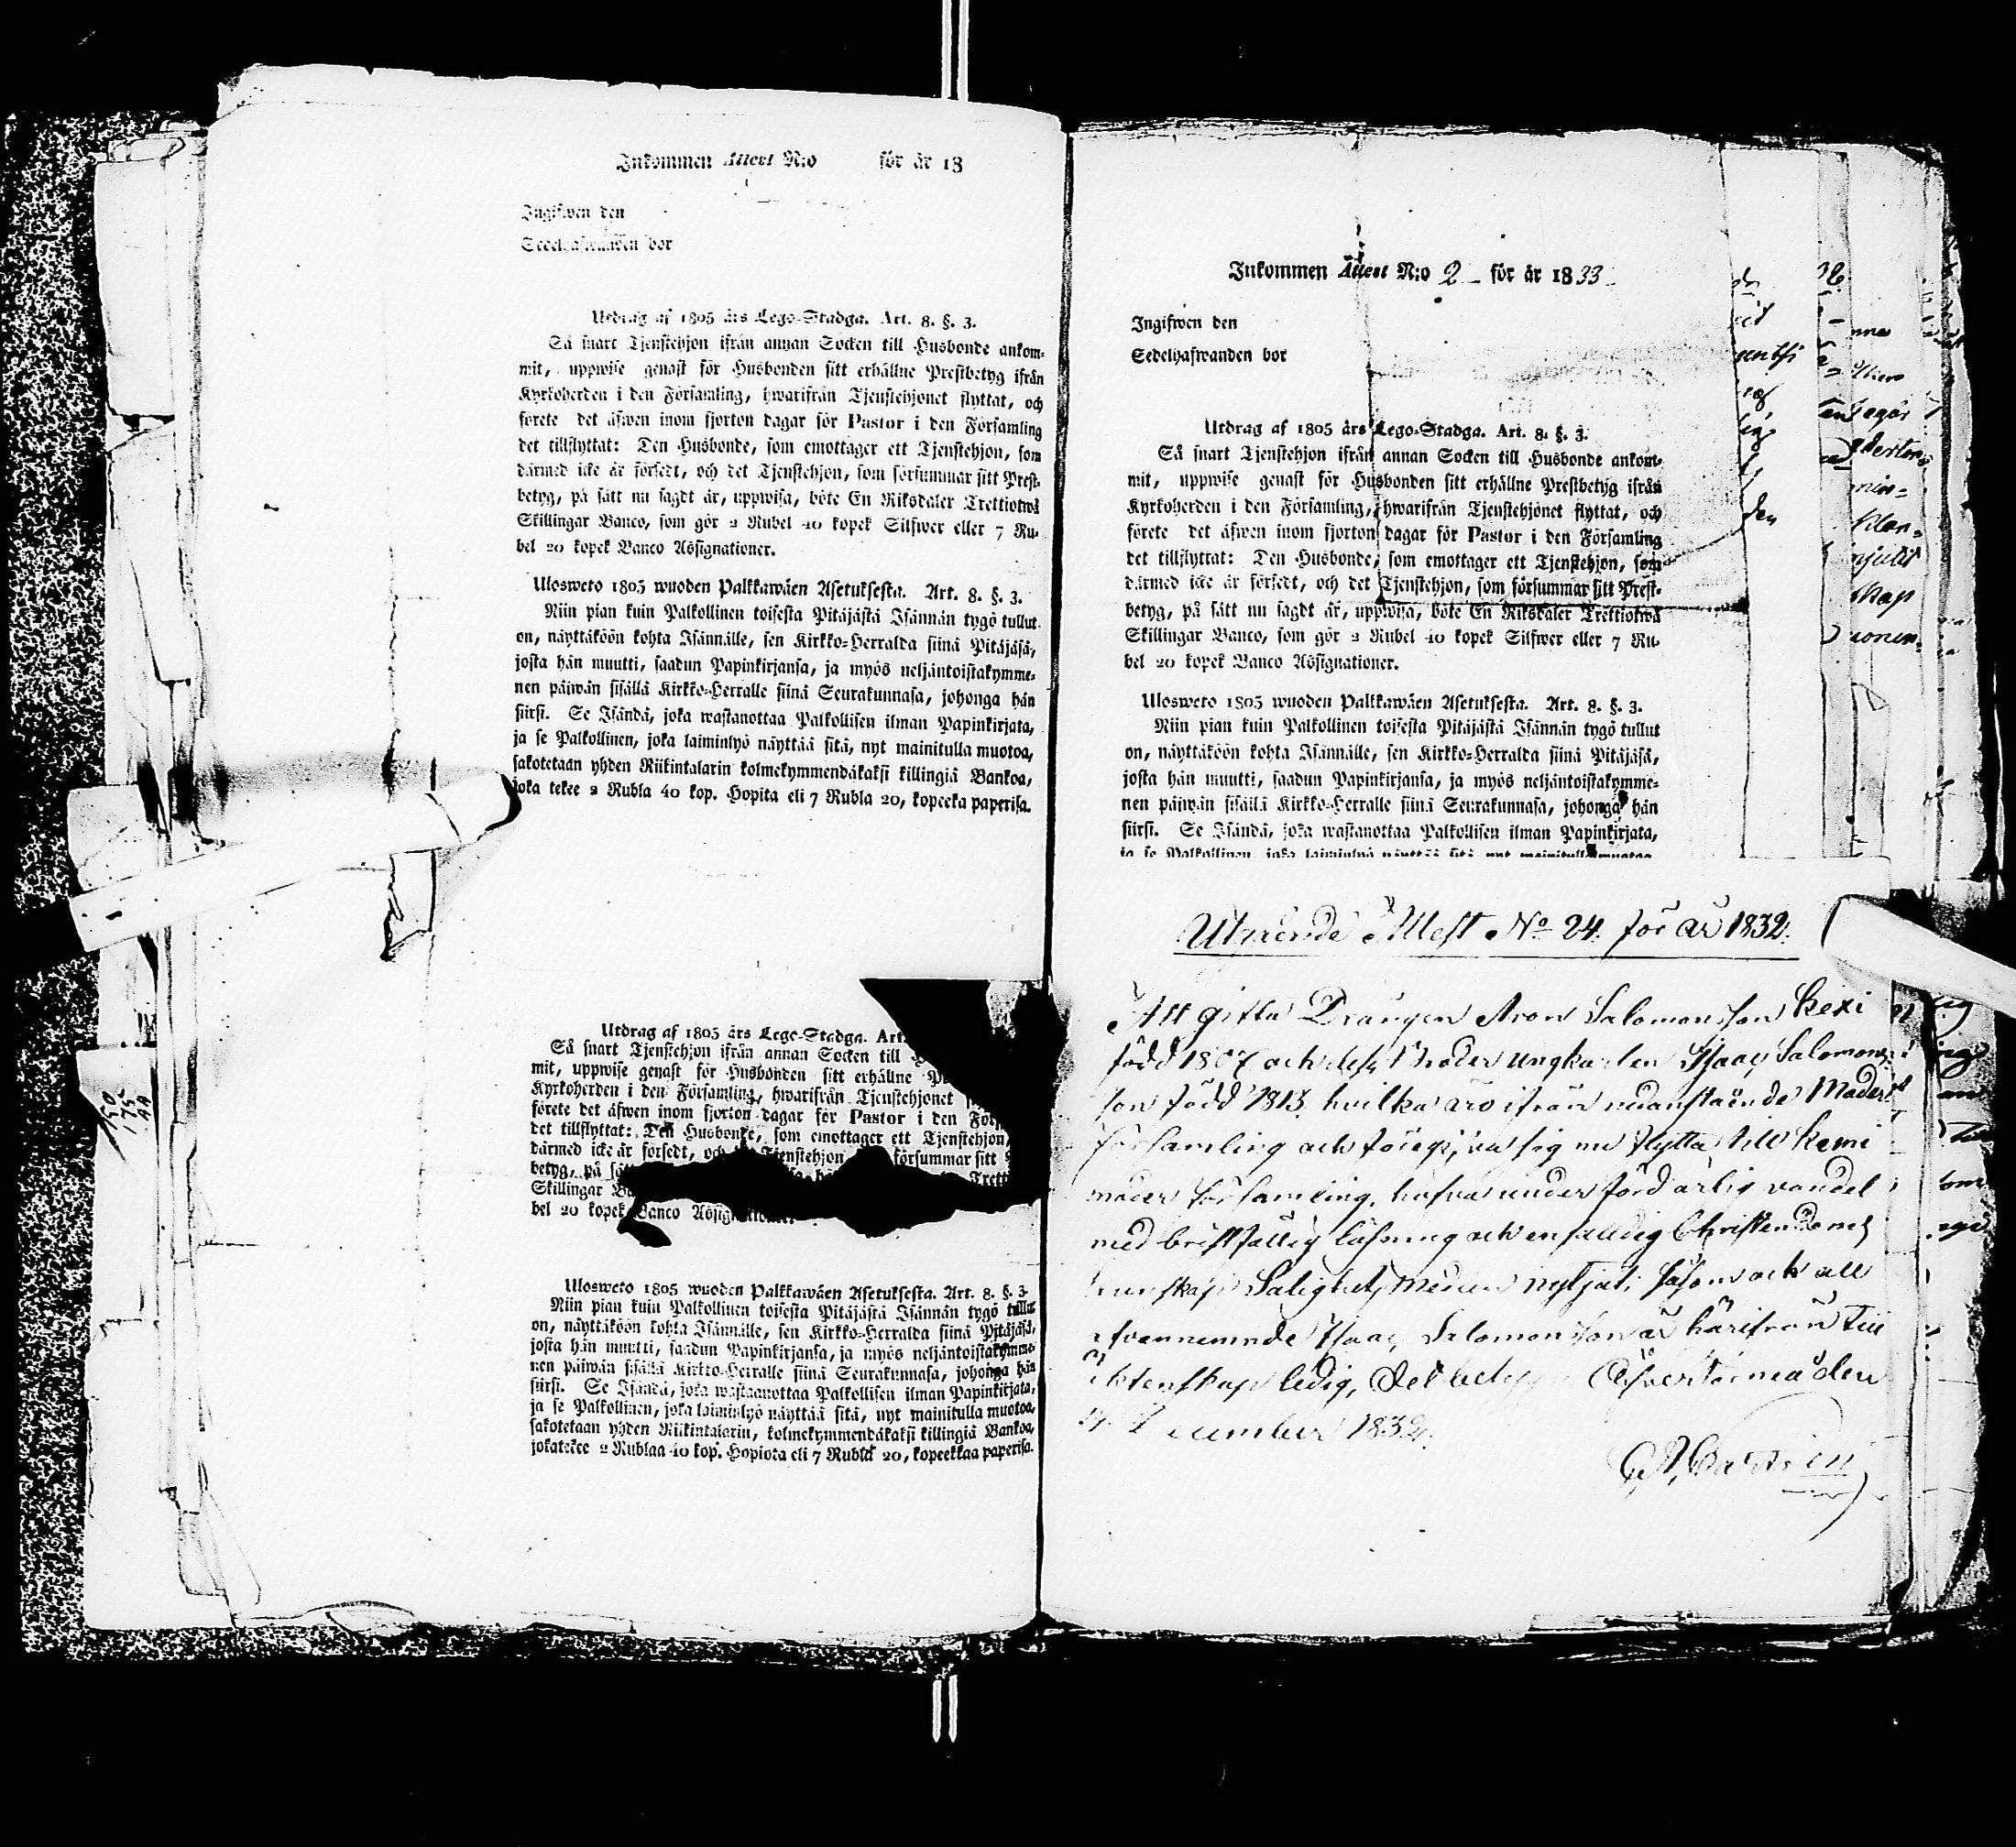 Inkommen Attest N:o för år 18
Ingifwen den
Sedelhafwanden bor
Utdrag af 1805 års Lego-Stadga. Art. 8. §. 3.
Så snart Tjenstehjon ifrån annan Socken till Husbonde ankom-
mit, uppwise genast för Husbonden sitt erhållne Prestbetyg ifrån
Kyrkoherden i den Församling, hwarifrån Tjenstehjonet flyttat, och
förete det äfwen inom fjorton dagar för Pastor i den Församling
det tillflyttat: Den Husbonde, som emottager ett Tjenstehjon, som
därmed icke är försedt, och det Tjenstehjon, som försummar sitt Prest-
betyg, på sätt nu sagdt är, uppwisa, böte En Riksdaler Trettiotwå
Skillingar Banco, som gör 2 Rubel 40 kopek Silfwer eller 7 Ru-
bel 20 kopek Banco Assignationer.
Ulosweto 1805 wuoden Palkkawäen Asetuksesta. Art. 8. §. 3.
Niin pian kuin Palkollinen toisesta Pitäjästä Isännän tygö tullut
on, näyttäköön kohta Isännälle, sen Kirkko-Herralda siinä Pitäjäsä,
josta hän muutti, saadun Papinkirjansa, ja myös neljäntoistakymme-
nen päiwän sisällä Kirkko-Herralle siinä Seurakunnasa, johonga hän
siirsi. Se Isändä, joka wastanottaa Palkollisen ilman Papinkirjata,
ja se Palkollinen, joka laiminlyö näyttää sitä, nyt mainitulla muotoa,
sakotetaan yhden Riikintalarin kolmekymmendäkaksi killingiä Bankoa,
joka tekee 2 Rubla 40 kop. Hopita eli 7 Rubla 20, kopeeka paperisa.
Utdrag af 1805 års Lego-Stadga. Art.
Så snart Tjenstehjon ifrån annan Socken till
mit, uppwise genast för Husbonden sitt erhållne
Kyrkoherden i den Församling, hwarifrån Tjenstehjonet
förete det äfwen inom fjorton dagar för Pastor i den
det tillflyttat: Den Husbonde, som emottager ett Tjenstehjon,
därmed icke är försedt, och Tjenstehjon försummar sitt
betyg, på
Skillingar
bel 20 kopek Banco
Ulosweto 1805 wuoden Palkkawäen Asetuksesta. Art. 8. §. 3.
Niin pian kuin Palkollinen toisesta Pitäjästä Isännän tygö tullut
on, näyttäköön kohta Isännälle, sen Kirkko-Herralda siinä Pitäjäsä,
josta hän muutti, saadun Papinkirjansa, ja myös neljäntoistakymme-
nen päiwän sisällä Kirkko-Herralle siinä Seurakunnasa, johonga hän
siirsi. Se Isändä, joka wastaanottaa Palkollisen ilman Papinkirjata,
ja se Palkollinen, joka laiminlyö näyttää sitä, nyt mainitulla muotoa,
sakotetaan yhden Riikintalarin, kolmekymmendäkaksi killingiä Bankoa,
joka tekee 2 Rublaa 40 kop. Hopiota eli 7 Rubla 20, kopeekkaa paperisa.
Inkommen Attest N:o 2 för år 1833
Ingifwen den
Sedelhafwanden bor
Utdrag af 1805 års Lego-Stadga. Art. 8. §. 3.
Så snart Tjenstehjon ifrån annan Socken till Husbonde ankom-
mit, uppwise genast för Husbonden sitt erhållne Prestbetyg ifrån
Kyrkoherden i den Församling, hwarifrån Tjenstehjonet flyttat, och
förete det äfwen inom fjorton dagar för Pastor i den Församling
det tillflyttat: Den Husbonde, som emottager ett Tjenstehjon, som
därmed icke är försedt, och det Tjenstehjon, som försummar sitt Prest-
betyg, på sätt nu sagdt är, uppwisa, böte En Riksdaler Trettiotwå
Skillingar Banco, som gör 2 Rubel 40 kopek Silfwer eller 7 Ru-
bel 20 kopek Banco Assignationer.
Ulosweto 1805 wuoden Palkkawäen Asetuksesta. Art. 8. §. 3.
Niin pian kuin Palkollinen toisesta Pitäjästä Isännän tygö tullut
on, näyttäköön kohta Isännälle, sen Kirkko-Herralda siinä Pitäjäsä,
josta hän muutti, saadun Papinkirjansa, ja myös neljäntoistakymme-
nen päiwän sisällä Kirkko-Herralle siinä Seurakunnasa, johonga hän
siirsi. Se Isändä, joka wastanottaa Palkollisen ilman Papinkirjata,
ja se Palkollinen, joka laiminlyö näyttää sitä, nyt mainitulla muotoa,
Utgående Attest No 24. för år 1832.
Att gifta Drängen Aron Salomonsson Kexi
född 1807 och dess broder ungkarlen Isaac Salomons-
son född 1813 hvilka äro ifrån nedanstående Moder
församling och föregifva sig nu flytta till Kemi
moder församling, hafva under förd ärlig vandel
med bristfällig läsning och enfaldig Christendoms
kunskap Salighets medlen nytjat, såsom ock att
ofvannemnde Isaac Salomonsson är härifrån till
äktenskap ledig, det betygar Öfvertorneå den
December 1832.